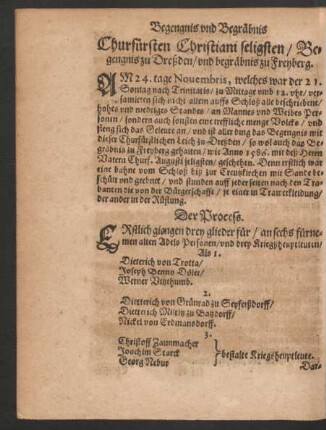 Begengnis vnd Begräbnis
Churfürsten Christiani seligsten / Be-
gengnis zu Dreßden / vnd begräbnis zu Freyberg.
AM 24. tage Nouembris, welches war der 21.
Sontag nach Trinitatis / zu Mittage vmb 12. vhr / ver-
samleten sich nicht allein auffs Schloß alle beschriebene /
hohes vnd niedriges Standes / an Mannes vnd Weibes Per-
sonen / sondern auch sonsten eine treffliche menge Volcks / vnd
fieng sich das Geleute an / vnd ist allerding das Begengnis mit
dieser Churfürstlichen Leich zu Dreßden / so wol auch das Be-
gräbnis zu Freyberg gehalten / wie Anno 1586. mit deß Herrn
Vatern Churf. Augusti seligsten / geschehen. Denn erstlich war
eine bahne vom Schloß biß zur Creutzkirchen mit Sande be-
schütt vnd geebnet / vnd stunden auff jeder seiten nach den Tra-
banten die von der Bürgerschafft / je einer in Trawrkleidung /
der ander in der Rüstung.
Der Process.
ERstlich giengen drey glieder für / an sechs fürne-
men alten Adels Personen / vnd drey Kriegßheuptleuten /
Als 1.
Dieterich von Trotta /
Joseph Benno Döler /
Werner Vitzthumb.
2.
Dietterich von Grünrad zu Seyfferßdorff /
Dietterich zu
Nickel von Erdmansdorff.
3.
Christoff Zaunmacher
Joachim Starck
Georg Nebur
bestalte Kriegsheuptleute.
Dar-